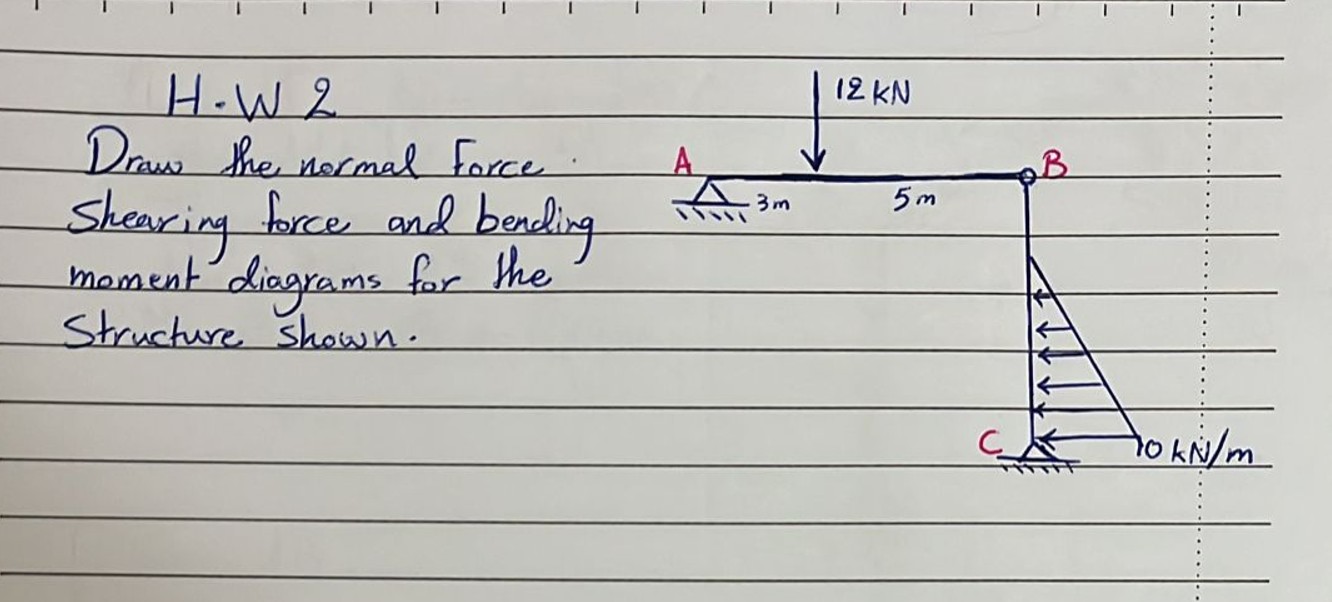 H.W 2
Draw the normal Force.
Shearing force and bending
moment diagrams for the
Structure shown.
12 kN
A
B
3m
5m
C
10 kN/m